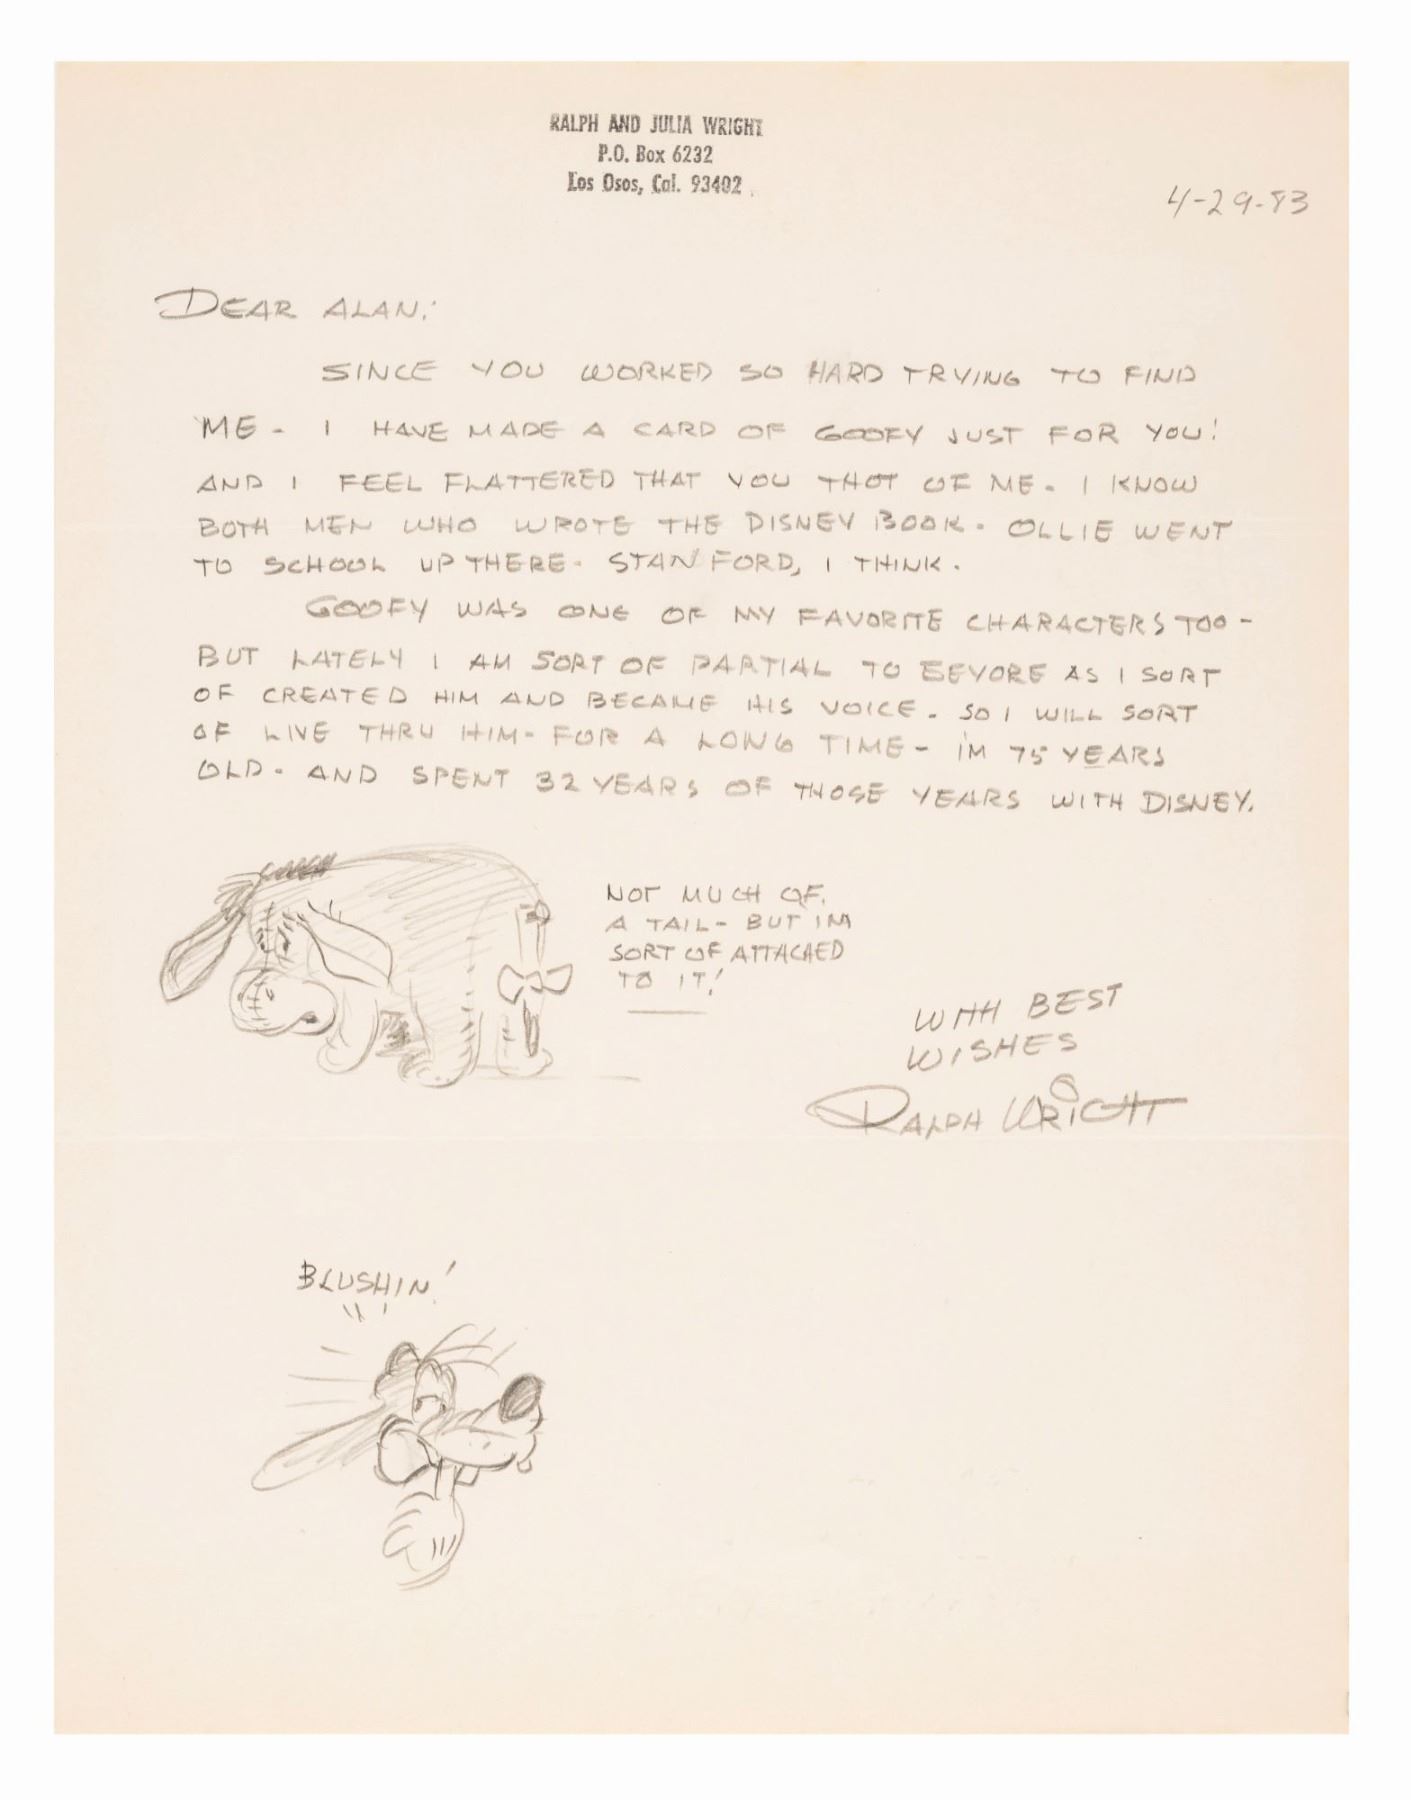 RALPH AND JULIA WRIGHT
P.O. Box 6232
Los Osos, Cal. 93402
4-29-83
DEAR ALAN:
SINCE YOU WORKED SO HARD TRYING TO FIND
ME - I HAVE MADE A CARD OF GOOFY JUST FOR YOU!
AND I FEEL FLATTERED THAT YOU THOT OF ME. I KNOW
BOTH MEN WHO WROTE THE DISNEY BOOK. OLLIE WENT
TO SCHOOL UP THERE. STANFORD, I THINK.
GOOFY WAS ONE OF MY FAVORITE CHARACTERS TOO -
BUT LATELY I AM SORT OF PARTIAL TO EEYORE AS I SORT
OF CREATED HIM AND BECAME HIS VOICE. SO I WILL SORT
OF LIVE THRU HIM - FOR A LONG TIME - IM 75 YEARS
OLD - AND SPENT 32 YEARS OF THOSE YEARS WITH DISNEY.
NOT MUCH OF
A TAIL - BUT IM
SORT OF ATTACHED
TO IT!
WITH BEST
WISHES
RALPH WRIGHT
BLUSHIN!